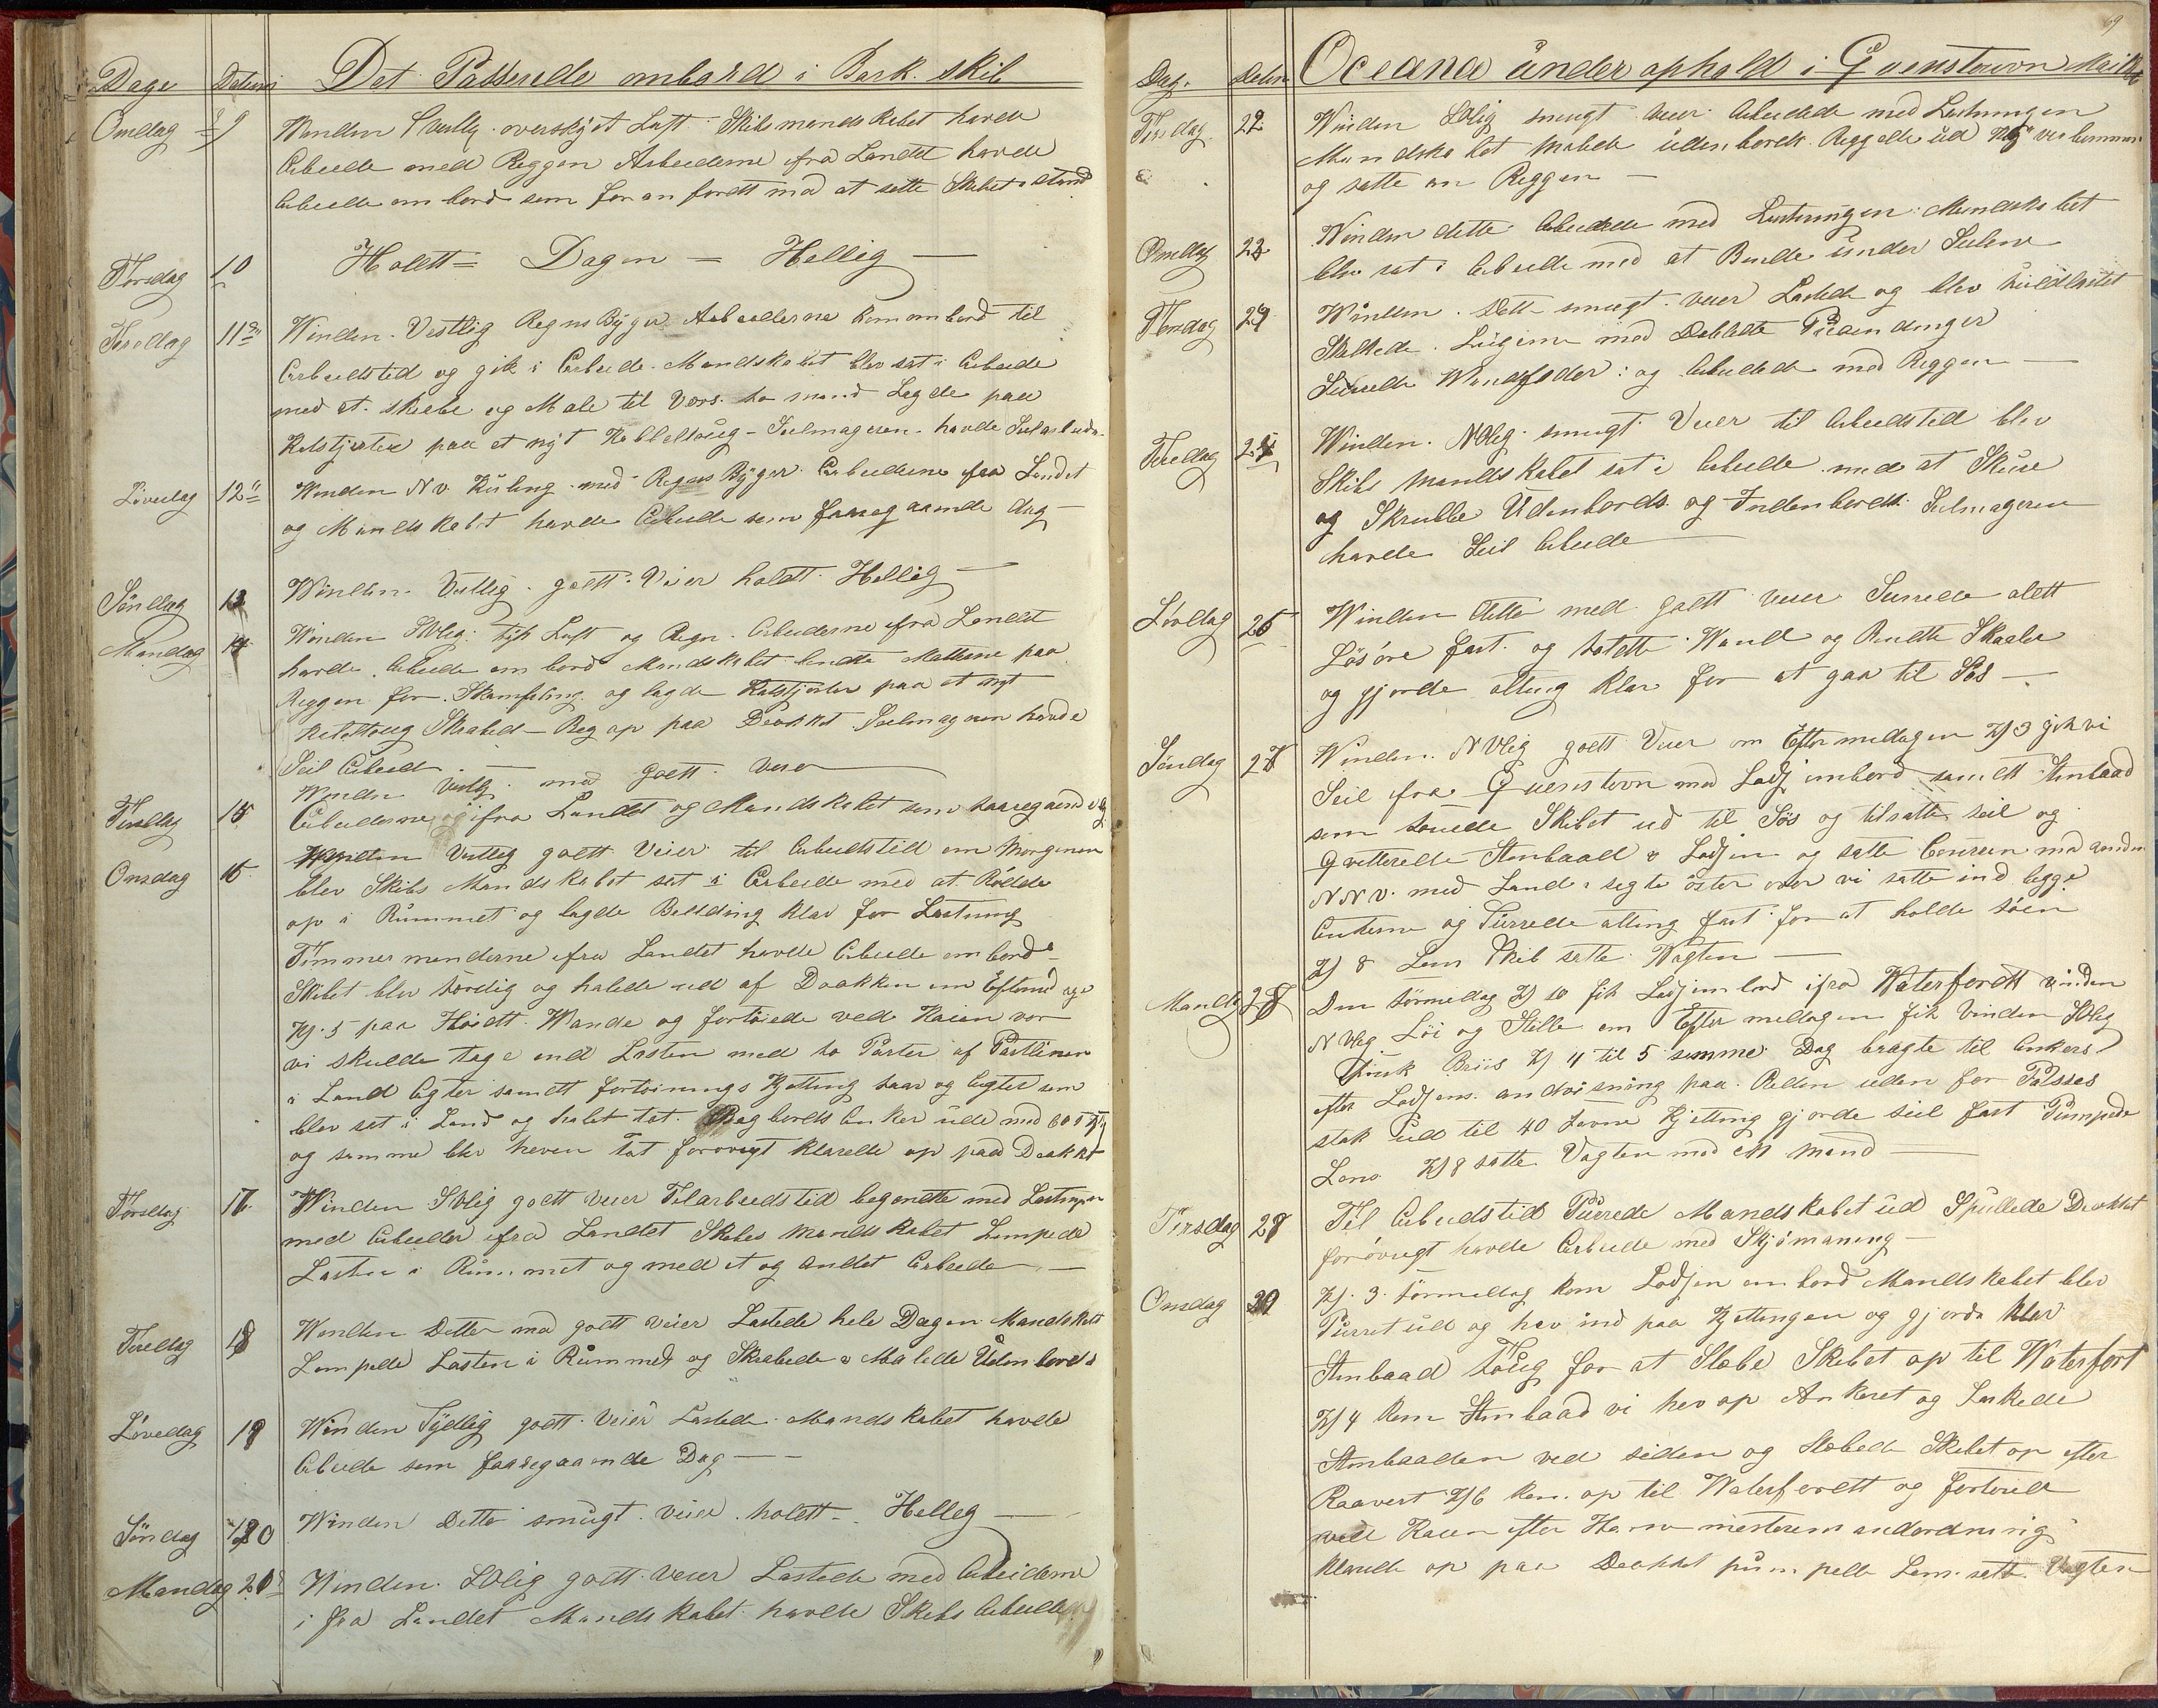 Dage Datum Det Passerede ombord i Bark. skib
Onsdag 9 Winden overskyet Luft. Skibs mandskabet havde
Arbeide med Reggen Arbeiderne fra Landet havde
Arbeide om bord som for an fördt med at sette Skibet i stand
Torsdag 10 Holdt = Dagen = Hellig —
Fredag 11te Winden. Vestlig Regns Byger Arbeiderne kom om bord til
Arbeidstid og gik i Arbeide. Mandskabet blev sat i Arbeide
med at skrabe og Male til Vers. to mand Lagde paa
paa et nyt Kabeltoug - Seilmageren havde Seilarbeide
Löverdag 12te Winden N.V. Kuling med Regns Byger Arbeiderne fra Landet
og Mandskabet havde Arbeide som foregaaende dag —
Söndag 13 Winden. Vestlig. godt. Veier holdt Hellig —
Mandag 14 Winden SVlig. tyk Luft og Regn. Arbeiderne fra Landet
havde. Arbeide om bord Mandskabet Matterne paa
Reggen for. Skamfiling og lagde paa et nyt
Skrabed - Reg op paa Dækket Seilmageren havde
Seil Arbeid. —
Winden Vestlig. med godt. Veier —
Tirsdag 15 Arbeiderne ifra Landet og Mandskabet som foregaaende dag
Onsdag 16 Winden Vestlig godt Veier til Arbeidstid om Morgenen
blev Skibs Mandskabet sat i Arbeide med at Rödde
op i Rummet og lagde Belding klar for Lastning
Tömmer menderne ifra Landet havde Arbeide om bord
Skibet blev færdig og halede ud af Dokken om Eftermidage
Kl. 5 paa Höidt. Wande og fortöiede ved Kaien vor
vi skulde tage ind Lasten med to Parter af Pertliner
i Land Agter samdt fortöinings Kjetting for og Agter som
blev sat i Land og halet tat. Bagbords Anker ude med
og samme blev heven Tat forövrigt klarede op paa Dækket
Torsdag 17 Winden SVlig godt veier Tilarbeidstid begyndte med Lastningen
med Arbeider ifra Landet Skibes Mandskabet Lempede
Lasten i Rummet og med et og Andet Arbeide —
Fredag 18 Winden Dette med godt veier Lastede hele Dagen Mandskabet
Lempede Lasten i Rummet og Skrabede & Malede Udenbords
Lövedag 19 Winden Sydlig godt. Veier Lastede. Mandskabet havde
Arbeide som foregaaende Dag —
Söndag 20 Winden Dette smugt. veier. holdt - Hellig —
Mandag 21 Winden. SVlig godt. veier Lastede med Arbeiderne
i fra Landet Mandskabet havde Skibs Arbeide
69
Dag. Datum Oceana under ophold i Qvenstown
Tirsdag 22 Winden SVlig smugt veier Arbeidede med Lastningen
Mandskabet Malede udenbords. Reggede ud
og satte an Reggen —
Onsdag 23 Winden dette Arbeidede med Lastningen Mandskabet
blev sat i Arbeide med at Bende under Seilene
Torsdag 24 Winden. Dette smugt. veier Lastede og blev
Skalkede Lugerne med Dobbelte Presendinger
Surrede Wandfader: og Arbeidede med Reggen —
Fredag 25 Winden. NVlig. smugt Veier til Arbeidstid blev
Skibs Mandskabet sat i Arbeide med at Skure
og Skrubbe Udenbords og Indenbords. Seilmageren
havde Seil Arbeide —
Lövdag 26 Winden dette med godt veier Surrede aldt
Lösöre fast. og Wand og
og gjorde alting klar for at gaa til Sös —
Söndag 27 Winden. NVlig godt Veier om Eftermedagen Kl 3 gik vi
Seil fra Queenstovn med Lods ombord samdt Stimbaad
som touede Skibet ud til Sös og tilsatte seil og
Qvitterede Stimbaad & Lodsen og satte Coursen med vinden
N N V. med Land i sigte öster over vi satte ind begge
Ankerne og Surrede alting fast for at holde söen
Kl 8 Lens Skib satte Wagten —
Mandag 28 Om formedag Kl 10 fik Lods ombord ifra Waterfordt vinden
NVlig Löi og Stille om Eftermedagen fik Vinden SVlig
frisk Briis Kl 4 til 5 samme Dag bragte til Ankers
efter Lodsens andvisning paa Reden uden for
stak ud til 40 favne Kjetting gjorde seil fast Pumpede
Lens Kl 8 satte Vagten med en Mand —
Tirsdag 29 Til Arbeidstid Purrede Mandskabet ud Spullede Dækket
forövrigt havde Arbeide med Skjömaning —
Onsdag 30 Kl. 3. formedag kom Lodsen om bord Mandskabet blev
Purret ud og hev ind paa Kjettingen og gjorde klar
Stimbaad Toug for at Slæbe Skibet op til Waterfort
Kl 4 kom Stimbaad vi hev op Ankeret og
Stimbaaden ved siden og Slæbede Skibet op efter
Kl 6 kom. op til Waterfordt og fortöiede
ved Kaien efter Havne mesterens andordning
klarede op paa Dækket pumpede Lens. satte Vagten